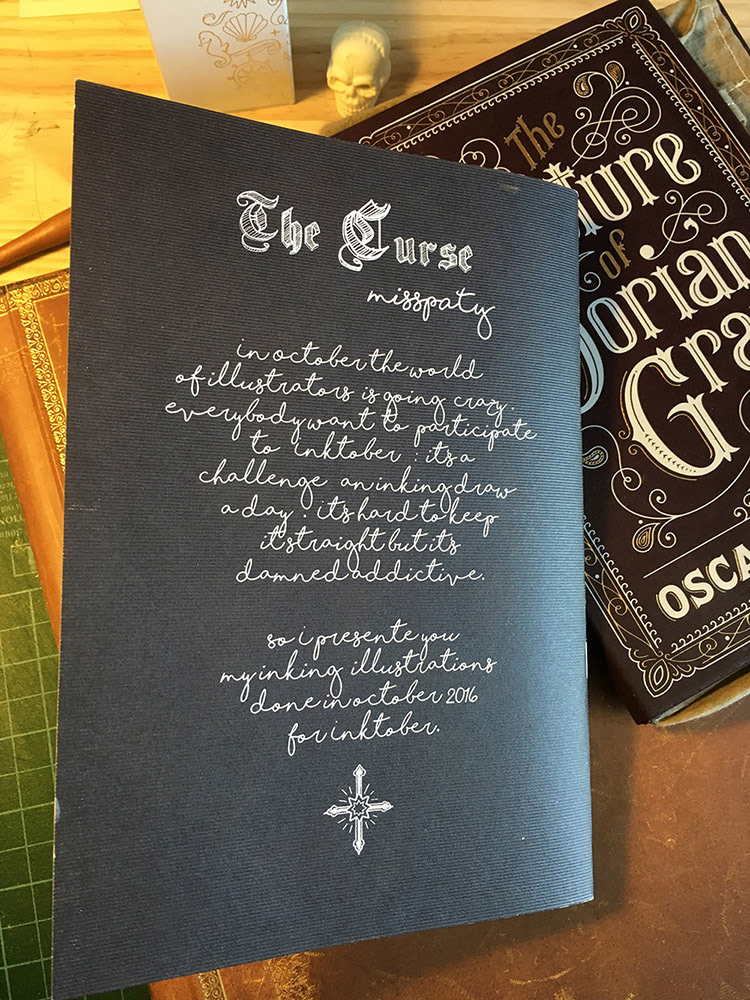 The Curse
misspaty
in october the world
of illustrators is going crazy.
everybody want to participate
to inktober : it's a
challenge an inking draw
a day. it's hard to keep
it straight but it's
damned addictive.
so i presente you
my inking illustrations
done in october 2016
for inktober.
The
ture
of
Dorian
Gra
OSCA